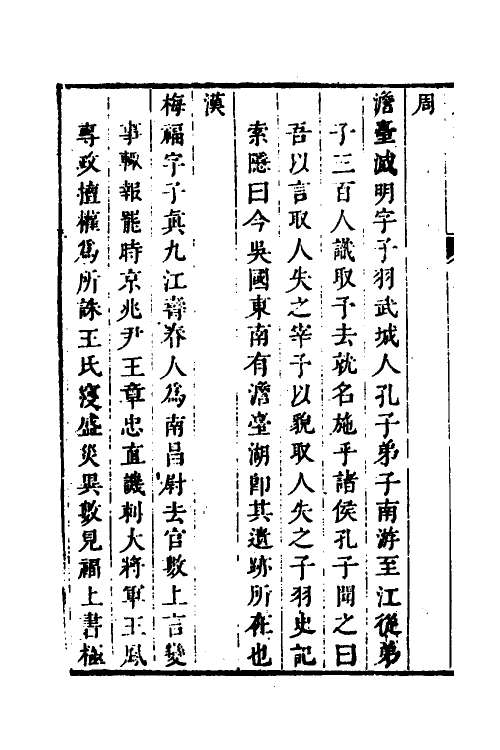 周
澹臺滅明字子羽武城人孔子弟子南游至江從弟
子三百人設取予去就名施乎諸侯孔子聞之曰
吾以言取人失之宰予以貌取人失之子羽史記
索隱曰今吳國東南有澹臺湖即其遺跡所在也
漢
梅福字子真九江壽春人爲南昌尉去官數上言變
事輒報罷時京兆尹王章忠直譏刺大將軍王鳳
專政擅權爲所誅王氏寖盛災異數見福上書極